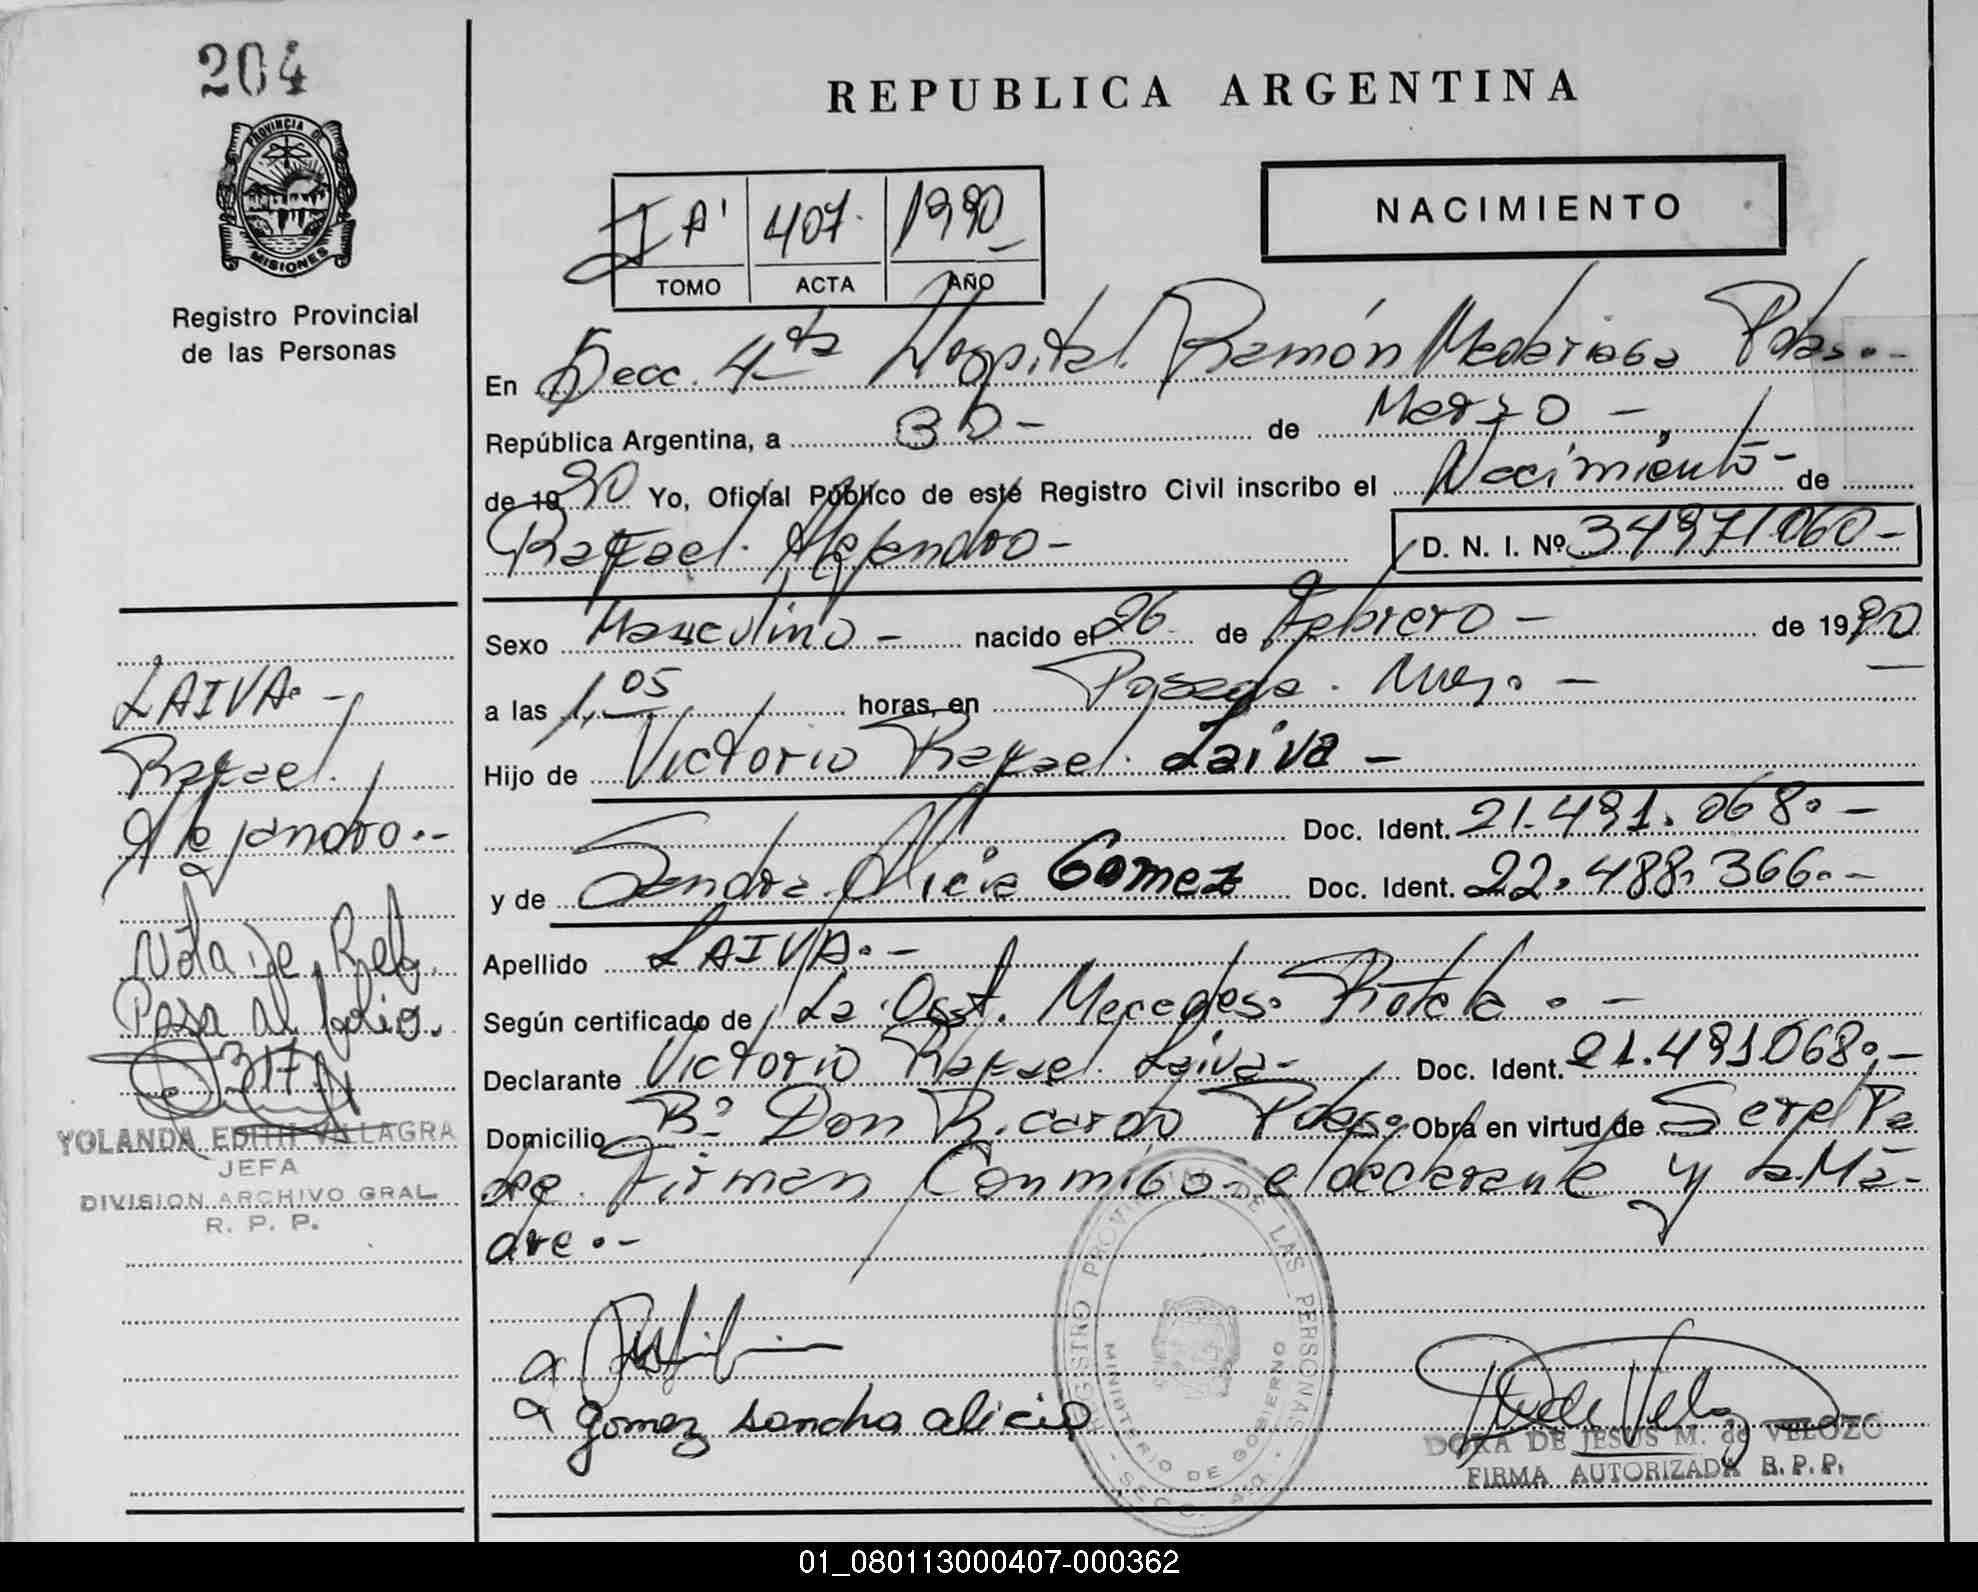 204
PROVINCIA DE
MISIONES
Registro Provincial
de las Personas
REPUBLICA ARGENTINA
I A' 407. 1990
TOMO ACTA AÑO
NACIMIENTO
En Secc. 4ta Hospital Ramón Madariaga Pdas.-
República Argentina, a 30- de Marzo -
de 1990 Yo, Oficial Público de este Registro Civil inscribo el Nacimiento- de
Rafael Alejandro- D. N. I. Nº 34971060-
Sexo Masculino - nacido el 26 de Febrero - de 1990
a las 1,05 horas, en Posadas. Mnes. -
Hijo de Victorio Rafael Laiva -
Doc. Ident. 21.491.068.-
y de Sandra Alicia Gomez Doc. Ident. 22.488.366.-
Apellido LAIVA.-
Según certificado de La Obst. Mercedes Rotela.-
Declarante Victorio Rafael Laiva- Doc. Ident. 21.491068.-
Domicilio Bº Don Ricardo Pdas. Obra en virtud de Ser el Pa
dre. Firman Conmigo el declarante y la Ma-
dre.-
LAIVA.-
Rafael
Alejandro.-
Nota de Ref.
Pasa al folio.
317
YOLANDA EDITH VILLAGRA
JEFA
DIVISION ARCHIVO GRAL
R. P. P.
gomez sandra alicia
REGISTRO PROVINCIAL DE LAS PERSONAS
MINISTERIO DE GOBIERNO
DORA DE JESUS M. de VELOZO
FIRMA AUTORIZADA R.P.P.
01_080113000407-000362